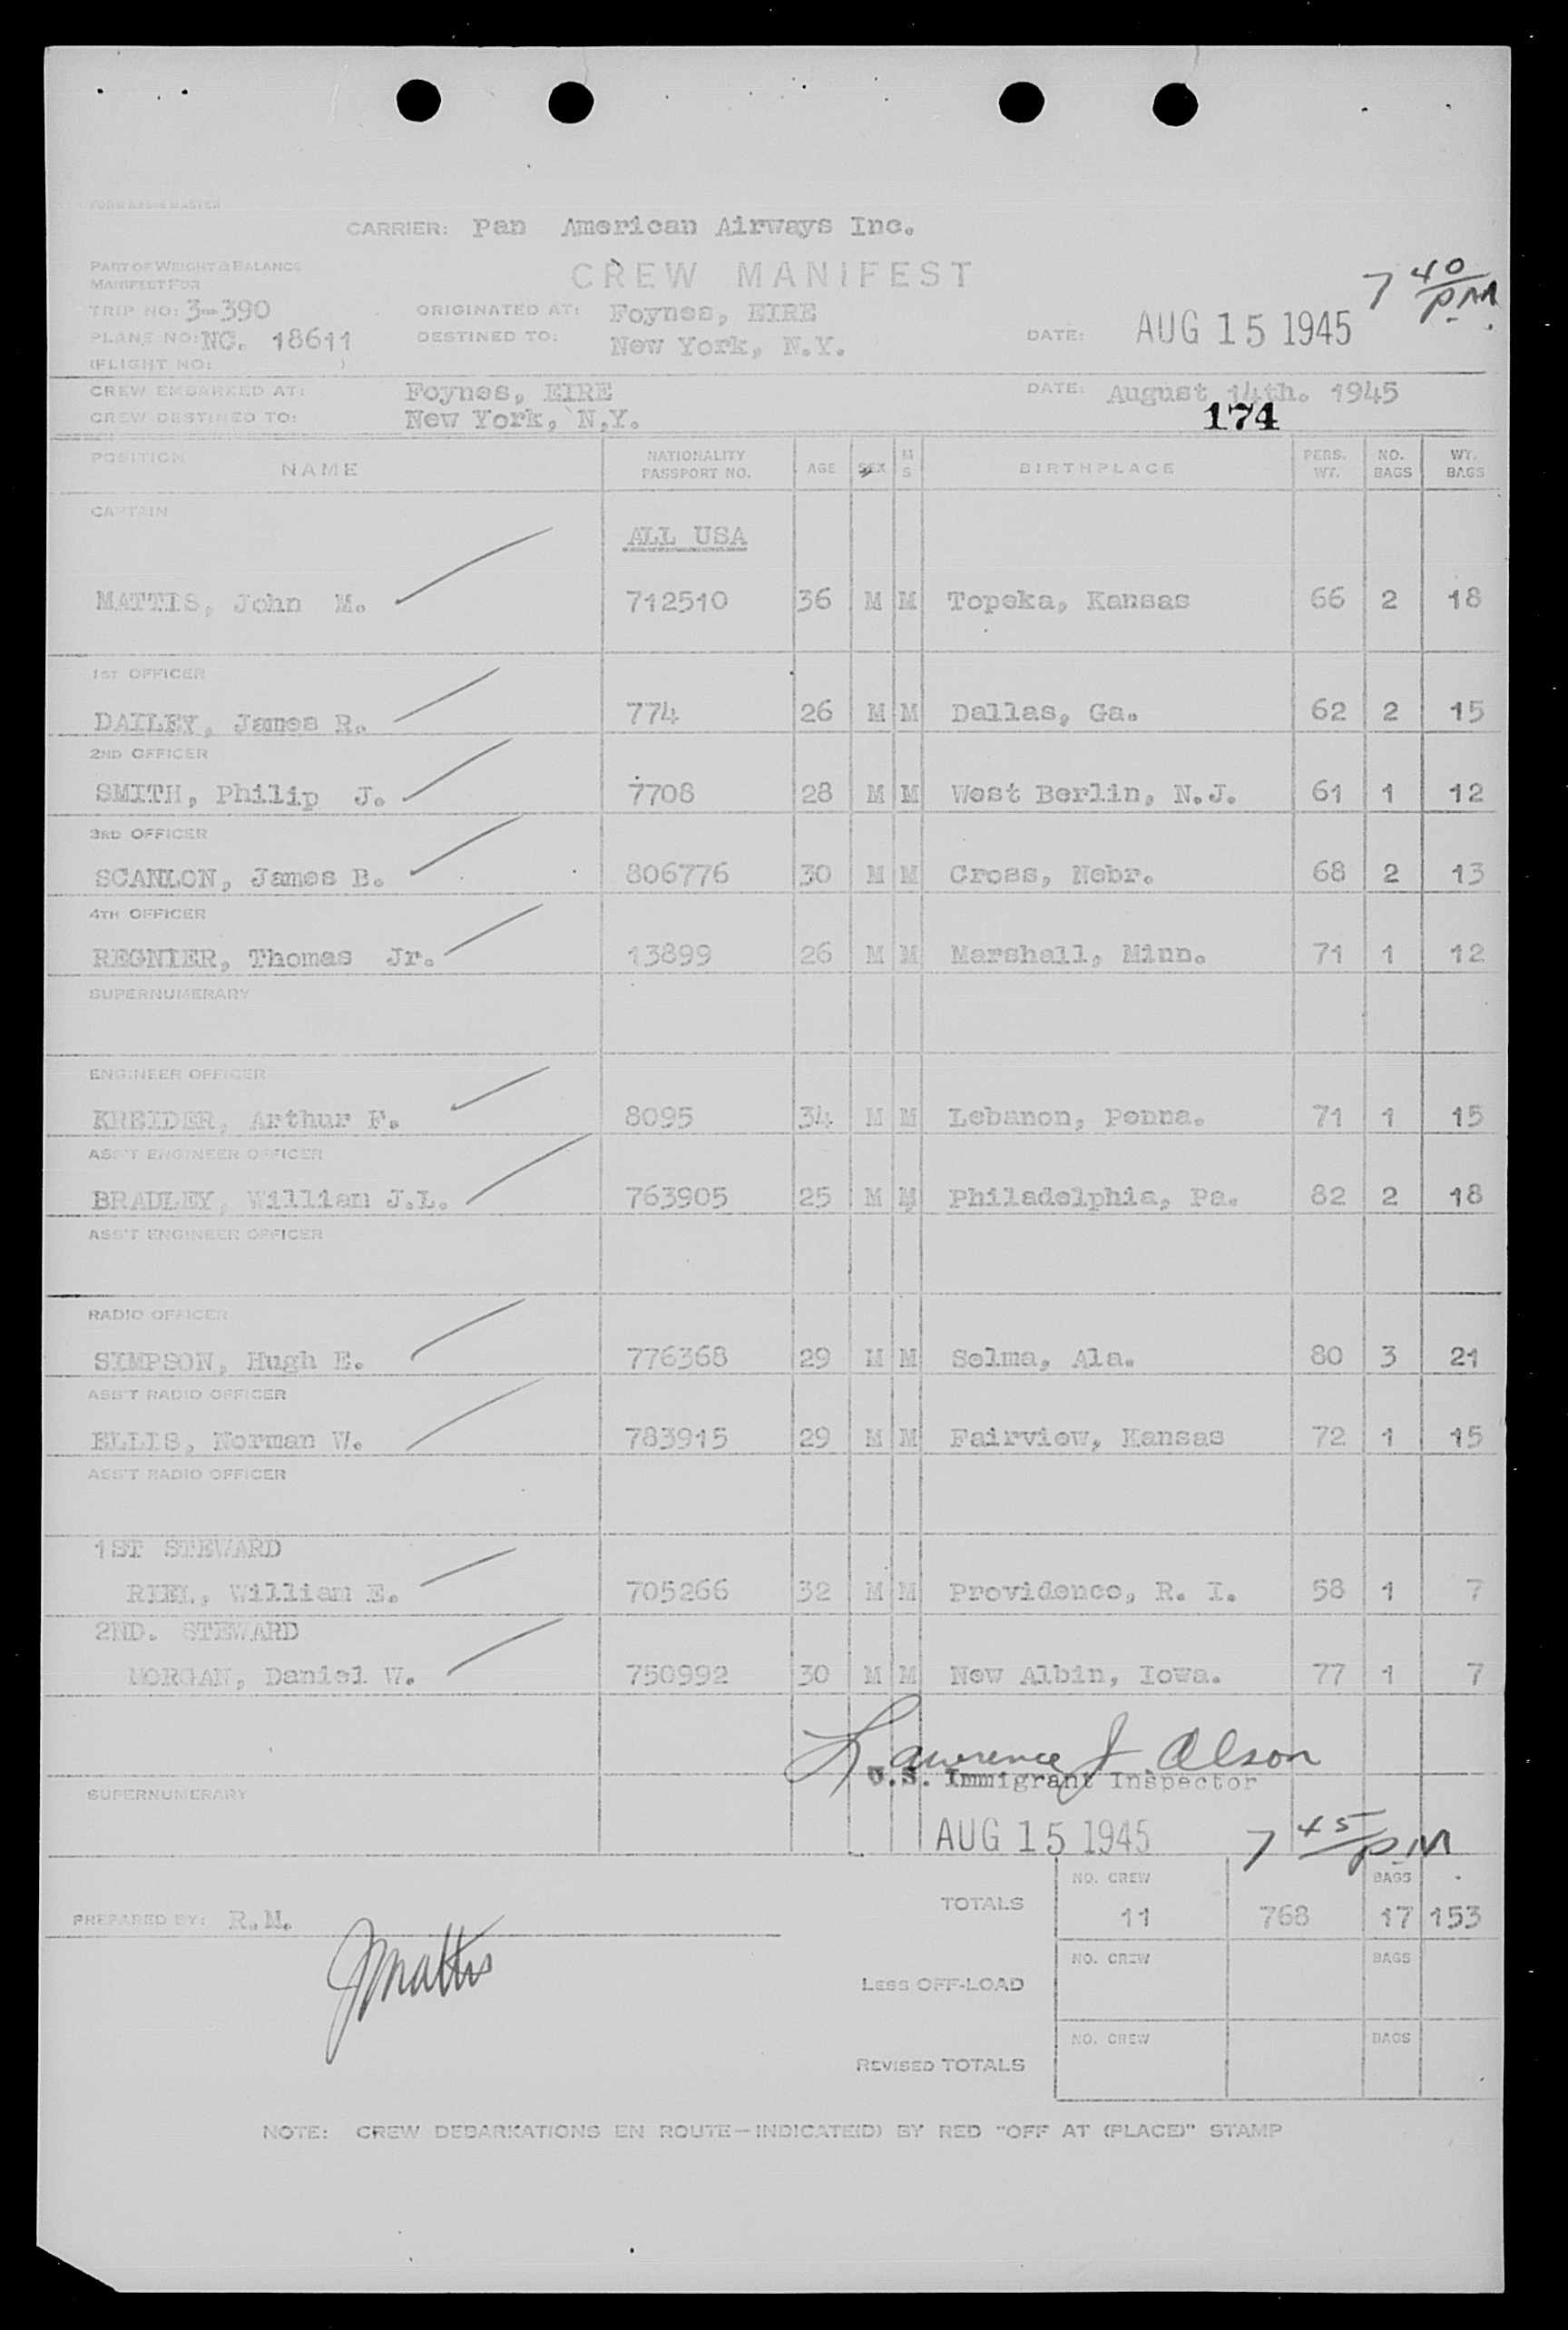 CARRIER: Pan American Airways Inc.
PART OF WEIGHT & BALANCE
MANIFEST FOR
CREW MANIFEST
7 40/PM
TRIP NO: 3-390 ORIGINATED AT: Foynes, EIRE
PLANE NO: NC. 18611 DESTINED TO: New York, N.Y. DATE: AUG 15 1945
(FLIGHT NO: )
CREW EMBARKED AT: Foynes, EIRE DATE: August 14th. 1945
CREW DESTINED TO: New York, N.Y. 174
POSITION NAME NATIONALITY PASSPORT NO. AGE SEX M S BIRTHPLACE PERS. WT. NO. BAGS WT. BAGS
CAPTAIN
ALL USA
MATTIS, John M. 712510 36 M M Topeka, Kansas 66 2 18
1ST OFFICER
DAILEY, James R. 774 26 M M Dallas, Ga. 62 2 15
2ND OFFICER
SMITH, Philip J. 7708 28 M M West Berlin, N.J. 61 1 12
3RD OFFICER
SCANLON, James B. 806776 30 M M Cross, Nebr. 68 2 13
4TH OFFICER
REGNIER, Thomas Jr. 13899 26 M M Marshall, Minn. 71 1 12
SUPERNUMERARY
ENGINEER OFFICER
KREIDER, Arthur F. 8095 34 M M Lebanon, Penna. 71 1 15
ASS'T ENGINEER OFFICER
BRADLEY, William J.L. 763905 25 M M Philadelphia, Pa. 82 2 18
ASS'T ENGINEER OFFICER
RADIO OFFICER
SIMPSON, Hugh E. 776368 29 M M Selma, Ala. 80 3 21
ASS'T RADIO OFFICER
ELLIS, Norman W. 783915 29 M M Fairview, Kansas 72 1 15
ASS'T RADIO OFFICER
1ST STEWARD
RIEL, William E. 705266 32 M M Providence, R. I. 58 1 7
2ND. STEWARD
MORGAN, Daniel W. 750992 30 M M New Albin, Iowa. 77 1 7
Lawrence J. Olson
U.S. Immigrant Inspector
SUPERNUMERARY
AUG 15 1945 7 45/PM
NO. CREW BAGS
PREPARED BY: R.M. TOTALS 11 768 17 153
JMattis
NO. CREW BAGS
LESS OFF-LOAD
NO. CREW BAGS
REVISED TOTALS
NOTE: CREW DEBARKATIONS EN ROUTE—INDICATE(D) BY RED "OFF AT (PLACE)" STAMP